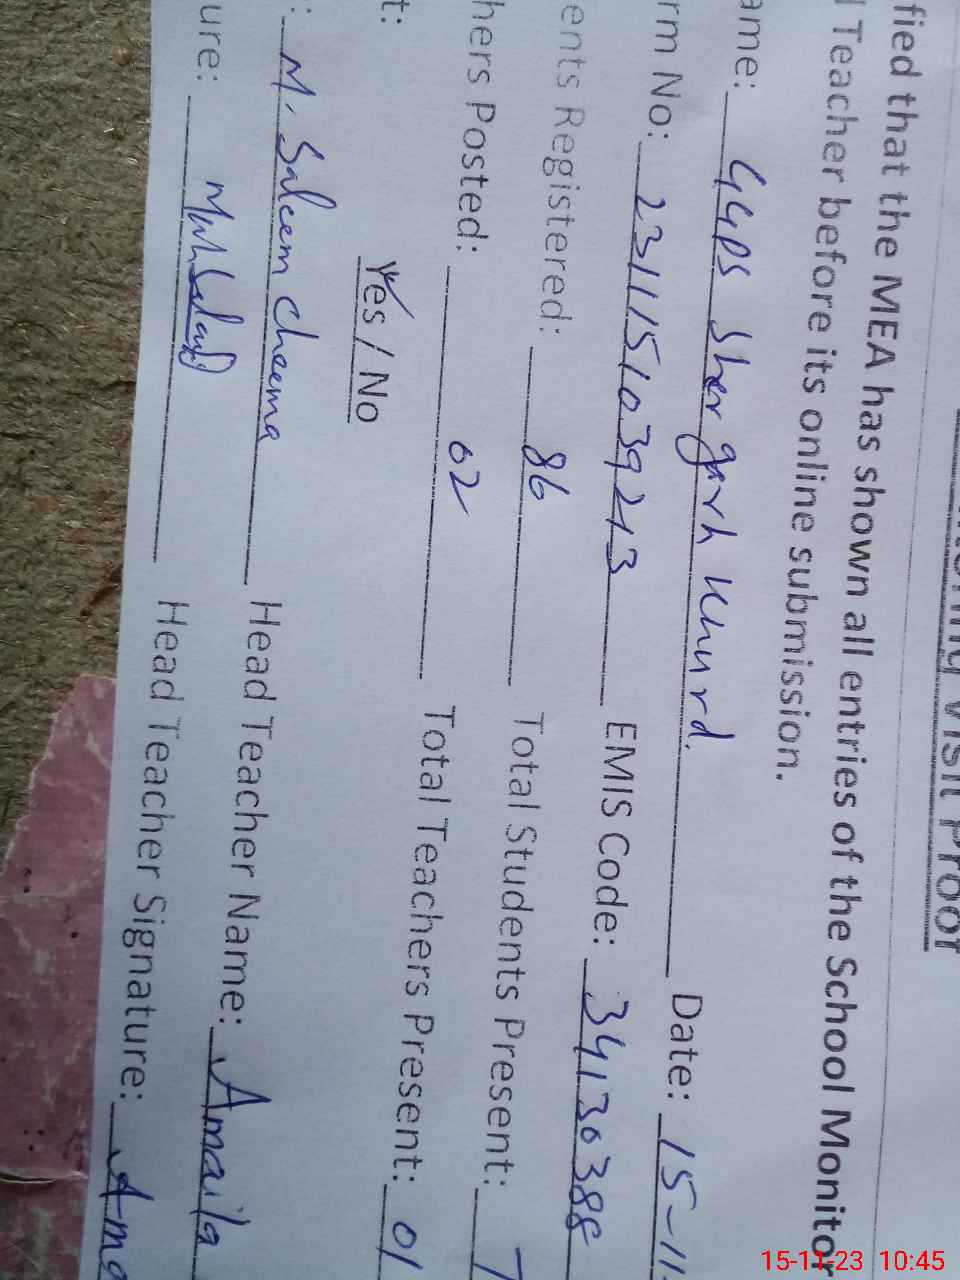 nitoring Visit Proof
fied that the MEA has shown all entries of the School Monitor
l Teacher before its online submission.
ame: GGPS Sher garh Khurd. Date: 15-11-
rm No: 2311151039213 EMIS Code: 34130388
ents Registered: 86 Total Students Present: 7
hers Posted: 02 Total Teachers Present: 01
t: Yes / No
: M. Saleem Cheema Head Teacher Name: Amaila
ure: Head Teacher Signature: Ama
15-11-23 10:45